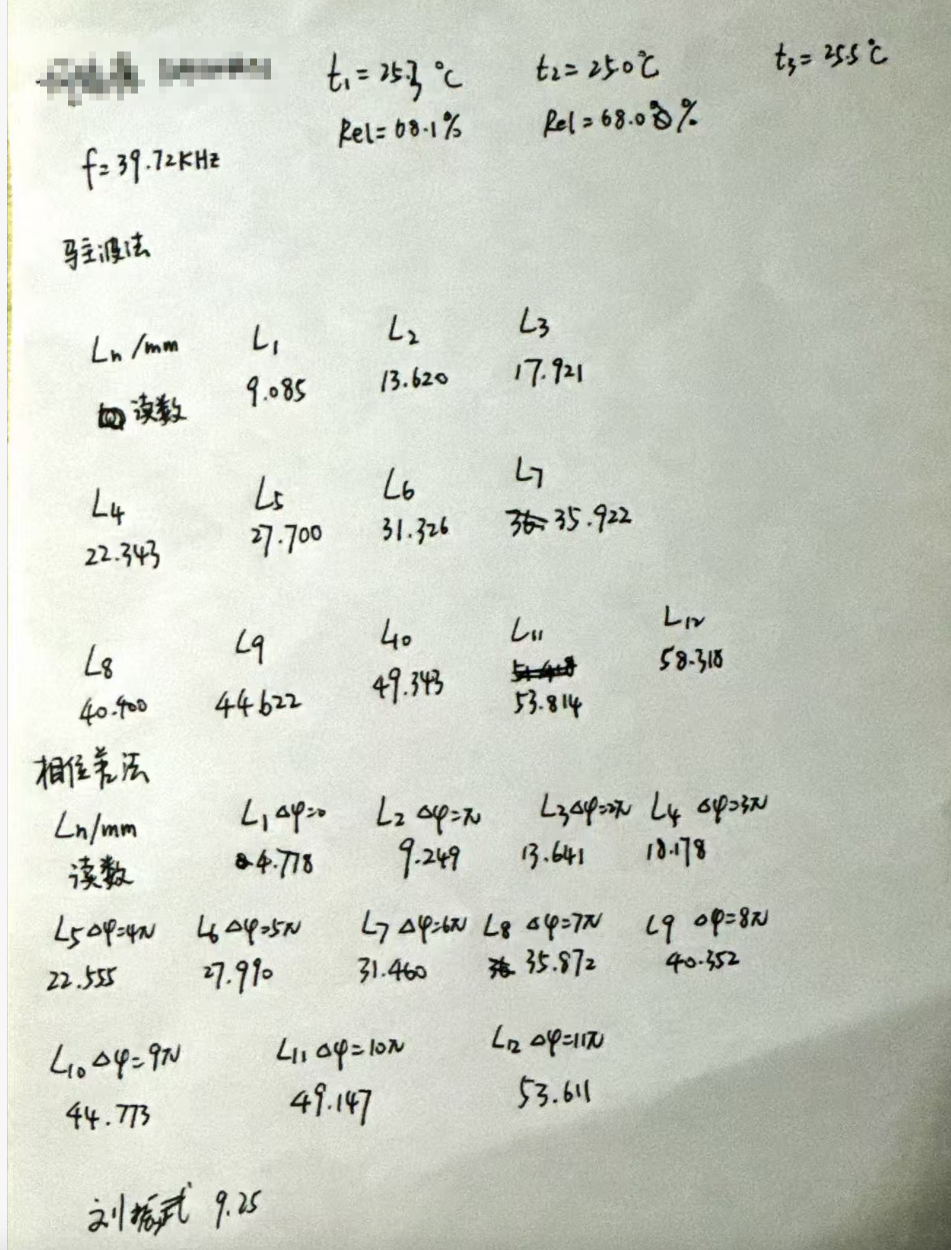 t₁=25.3℃ t₂=25.0℃ t₃=25.5℃
Rel=68.1% Rel=68.0%
f=39.72KHz
驻波法
Ln/mm L₁ L₂ L₃
读数 9.085 13.620 17.921
L₄ L₅ L₆ L₇
22.343 27.700 31.326 35.922
L₈ L₉ L₁₀ L₁₁ L₁₂
40.400 44.622 49.343 53.814 58.318
相位差法
Ln/mm L₁ Δφ=0 L₂ Δφ=π L₃ Δφ=2π L₄ Δφ=3π
读数 4.778 9.249 13.641 18.178
L₅ Δφ=4π L₆ Δφ=5π L₇ Δφ=6π L₈ Δφ=7π L₉ Δφ=8π
22.555 27.990 31.460 35.872 40.352
L₁₀ Δφ=9π L₁₁ Δφ=10π L₁₂ Δφ=11π
44.773 49.147 53.611
刘振武 9.25